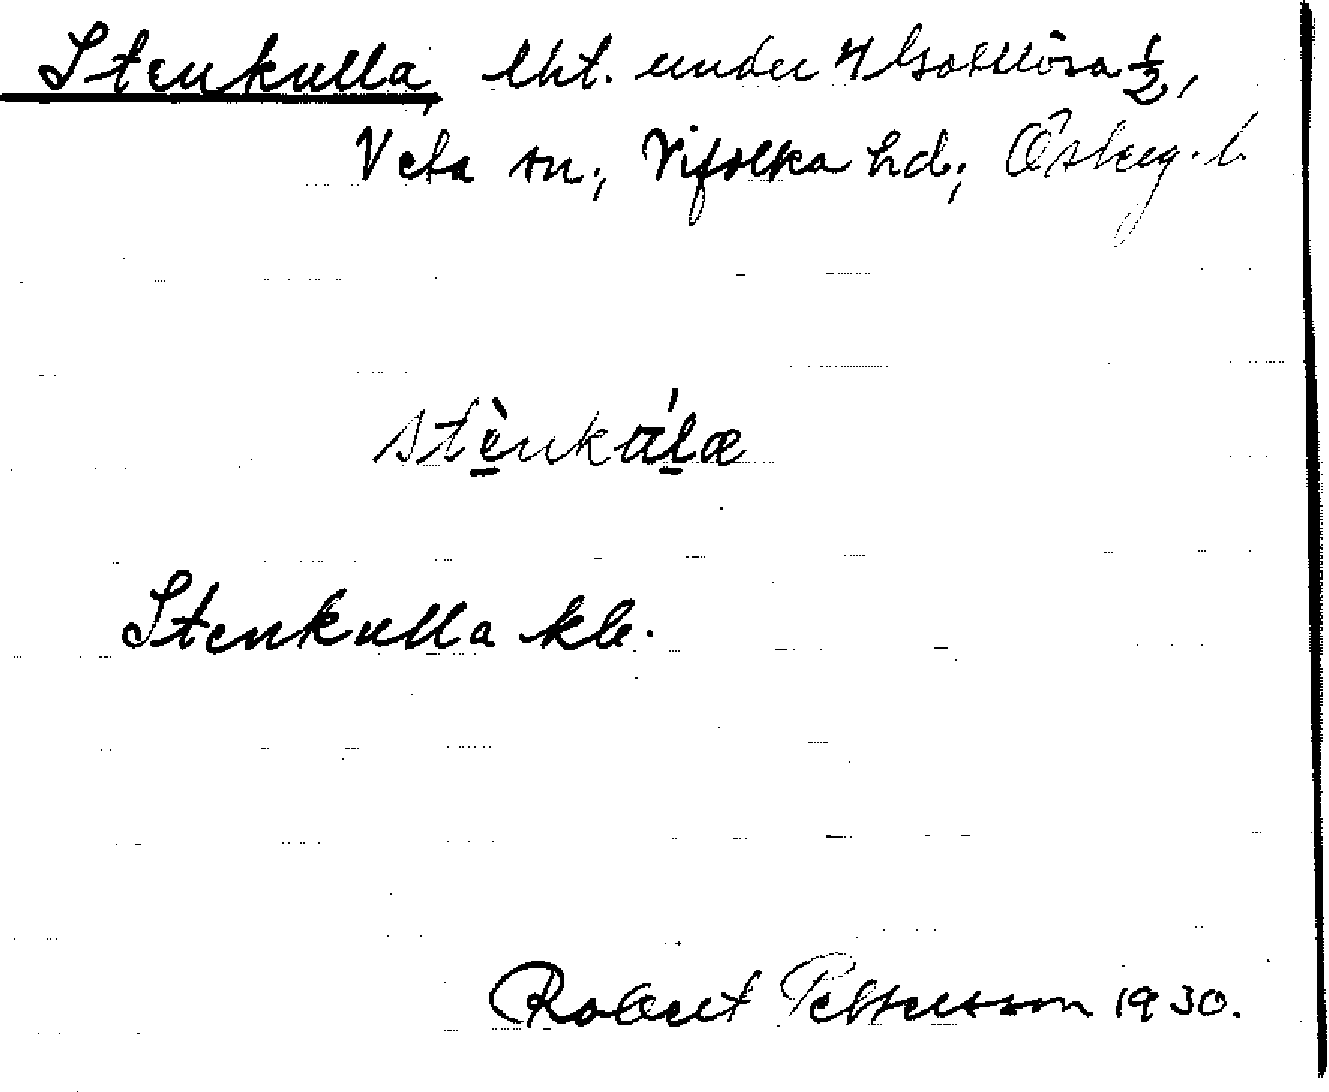 Stenkulla, lht. under Gottlösa ½,
Veta sn., Vifolka hd.,Österg. l.
stènkúlæ
Stenkulla kb.
Robert Pettersson 1930.